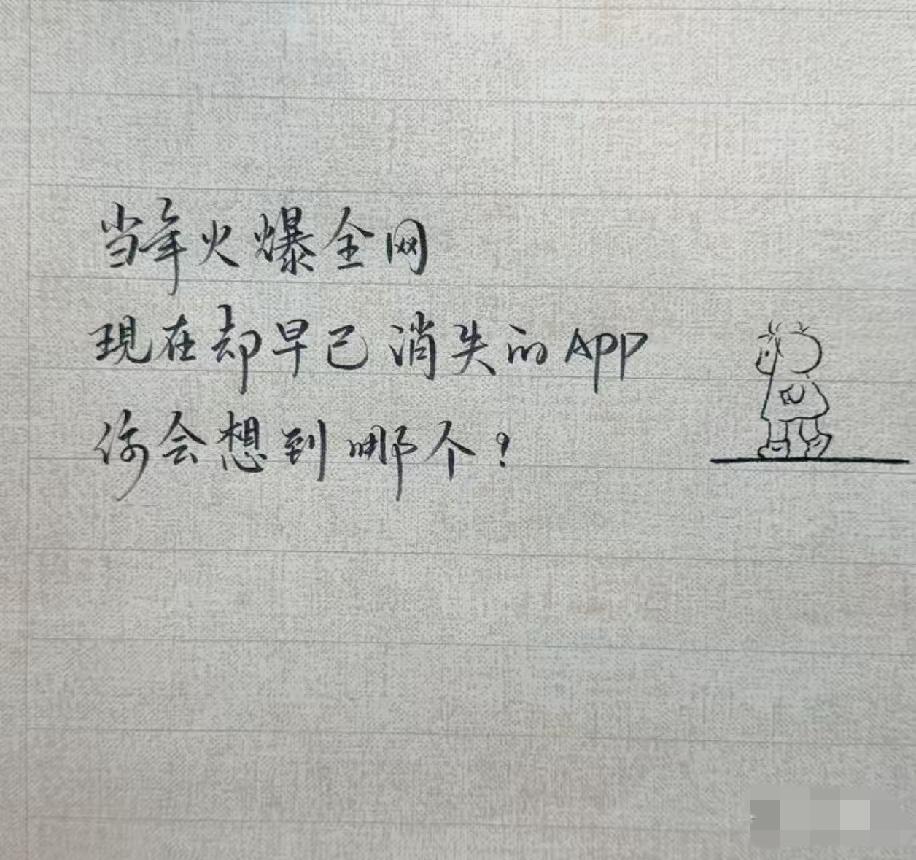 当年火爆全网
现在却早已消失的App
你会想到哪个？